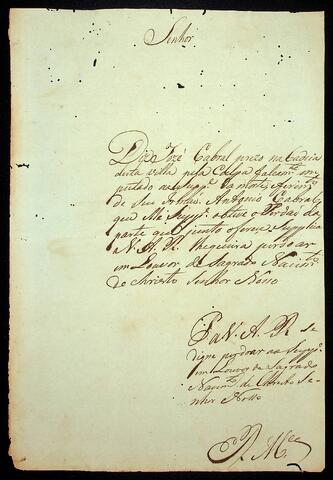 Senhor
Diz José Cabral prezo na Cadeia
desta villa pela Culpa falsam.te im
putada ao Supp.e da morte e ferim.tos
de seu Antonio Cabral,
que elle Supp.e obteve o Perdaõ da
parte que junto oferece, Supplica
a V. A. R. queira perdoar
em Louvor do Sagrado Nacim.to
de Christo Senhor Nosso
P. a V. A. R. se
digne perdoar ao Supp.e
em Louvor do Sagrado
Nacim.to de Christo Se-
nhor Nosso
E. R. M.ce